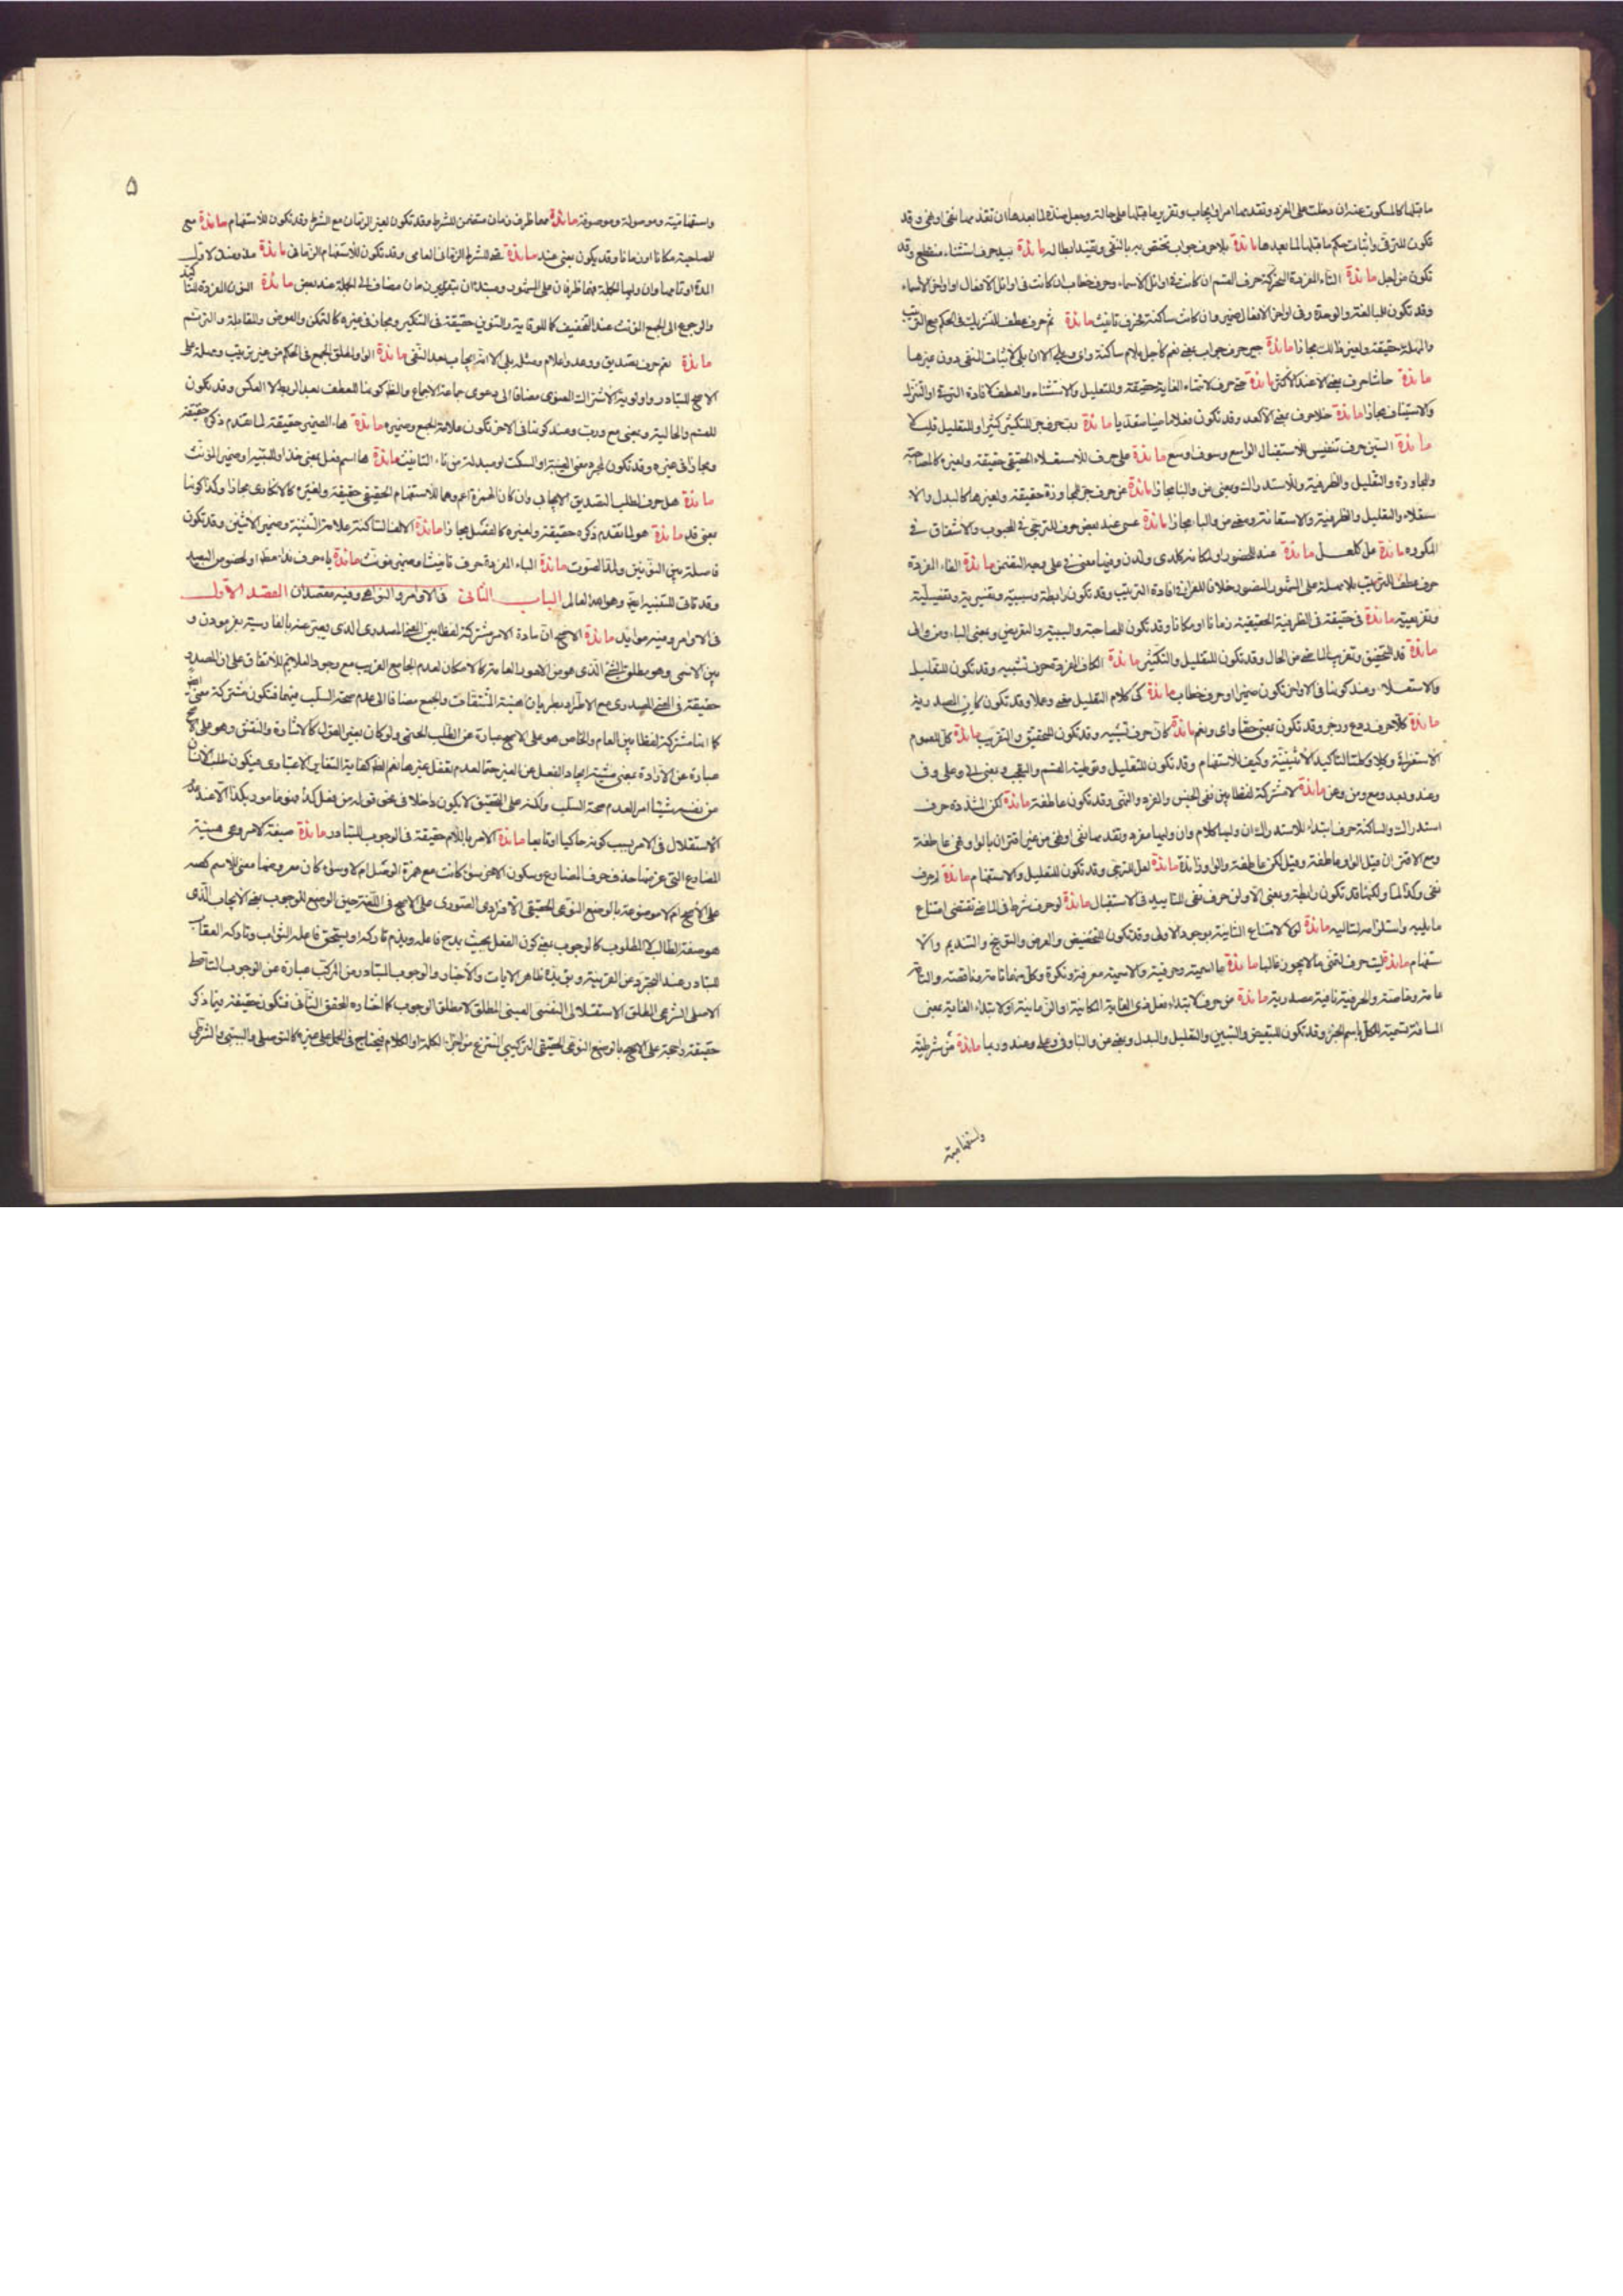 ما قبلها كالمسكوت عنه ان دخلت على المفرد وتقدمها امر او ايجاب وتقرير ما قبلها على حاله وجعل ضده لما بعدها ان تقدمها نفى او نهى وقد
تكون للترقى واثبات حكم ما قبلها لما بعدها مائدة بلى حرف جواب تختص به بالنفى ويفيد ابطاله مائدة بيد حرف استثناء منقطع وقد
تكون من اجل مائدة التاء المفردة المحركة حرف القسم ان كانت فى اوائل الاسماء وحرف خطاب ان كانت فى اوائل الافعال او اواخر الاسماء
وقد تكون للمبالغة والوحدة وفى اواخر الافعال ضمير وان كانت ساكنة فحرف تانيث مائدة ثم حرف عطف للتشريك فى الحكم مع الترتيب
والمهلة حقيقة ولغير ذلك مجازا مائدة جير حرف جواب بمعنى نعم كأجل بلام ساكنة واى وبلى الا ان بلى لاثبات النفى دون غيرها
مائدة حاشا حرف بمعنى الا عند الاكثر مائدة حتى حرف لانتهاء الغاية حقيقة وللتعليل والاستثناء والعطف كافادة الترتيب او التنزل
والاستيناف مجازا مائدة خلا حرف بمعنى الا كعدا وقد تكون فعلا ماضيا متعديا مائدة رب حرف جر للتكثير كثيرا وللتقليل قليلا
مائدة السين حرف تنفيس للاستقبال الواسع وسوف اوسع مائدة على حرف للاستعلاء الحقيقى حقيقة ولغيره كالمصاحبة
والمجاورة والتعليل والظرفية وللاستدراك وبمعنى من والباء مجازا مائدة عن حرف جر للمجاوزة حقيقة ولغيرها كالبدل والا
ستعلاء والتعليل والظرفية والاستعانة وبمعنى من والباء مجازا مائدة عسى عند بعض حرف للترجى فى المحبوب والاشفاق فى
المكروه مائدة عل كلعل مائدة عند للحضور او لمكانه كلدى ولدن وفيها معنى فى على وجه التضمن مائدة الفاء المفردة
حرف عطف للترتيب بلا مهلة على المشهور المنصور خلافا للفراء فى افادة الترتيب وقد تكون رابطة وسببية وتفسيرية وتفصيلية
وتفريعية مائدة فى حقيقة فى الظرفية الحقيقية زمانا او مكانا وقد تكون للمصاحبة والسببية والتعويض وبمعنى الباء ومن والى
مائدة قد للتحقيق وتقريب الماضى من الحال وقد تكون للتقليل والتكثير مائدة الكاف المفردة حرف تشبيه وقد تكون للتعليل
والاستعلاء وعند كونها فى الاواخر تكون ضميرا وحرف خطاب مائدة كى كلام التعليل معنى وعملا وقد تكون كان المصدرية
مائدة كلا حرف ردع وزجر وقد تكون بمعنى حقا واى ونعم مائدة كان حرف تشبيه وقد تكون للتحقيق والتقريب مائدة كل للعموم
الاستغراق وكلا وكلتا لتاكيد الاثنينية وكيف للاستفهام وقد تكون للتعليل وتوطئة القسم والتعجب وبمعنى الى وعلى وفى
وعند وبعد ومع ومن وعن مائدة لا مشتركة لفظا بين نفى الجنس والفرد والنهى وقد تكون عاطفة مائدة لكن المشددة حرف
استدراك والساكنة حرف ابتداء للاستدراك ان وليها كلام وان وليها مفرد وتقدمها نفى او نهى من غير اقتران بالواو فهى عاطفة
ومع الاقتران قيل الواو عاطفة وقيل لكن عاطفة والواو زائدة مائدة لعل للترجى وقد تكون للتعليل والاستفهام مائدة لم حرف
نفى وكذا لما ولكنها قد تكون رابطة وبمعنى الا ولن حرف نفى للتابيد فى الاستقبال مائدة لو حرف شرط فى الماضى تقتضى امتناع
ما يليه واستلزامه لتاليه مائدة لولا لامتناع الثانية بوجود الاولى وقد تكون للتحضيض والعرض والتوبيخ والتنديم والا
ستفهام مائدة ليت حرف لتمنى ما لا يجوز غالبا مائدة ما اسمية وحرفية والاسمية معرفة ونكرة وكل منهما تامة وناقصة والتامة
عامة وخاصة والحرفية نافية مصدرية مائدة من حرف لابتداء فعل ذى الغاية المكانية او الزمانية او لابتداء الغاية بمعنى
المسافة تسمية للكل باسم الجزء وقد تكون للتبعيض والتبيين والتعليل والبدل وبمعنى عن والباء وفى وعلى وعند وربما مائدة من شرطية
واستفهامية
۵
واستفهامية وموصولة وموصوفة مائدة مهما ظرف زمان متضمن للشرط وقد تكون لغير الزمان مع الشرط وقد تكون للاستفهام مائدة مع
للمصاحبة مكانا او زمانا وقد يكون بمعنى عند مائدة متى للشرط الزمانى العامى وقد تكون للاستفهام الزمانى مائدة مذ ومنذ لاول
المدة او تمامها وان وليها الجملة فهما ظرفان على المشهور ومبتدءان بتقدير زمان مضاف الى الجملة عند بعض مائدة النون المفردة للتاكيد
والرجوع الى الجمع المؤنث عند التخفيف كالوقاية والتنوين حقيقة فى التنكير ومجاز فى غيره كالتمكن والعوض والمقابلة والترنم
مائدة نعم حرف تصديق ووعد واعلام ومثله بلى الا انه ايجاب بعد النفى مائدة الواو لمطلق الجمع فى الحكم من غير ترتيب ومهلة على
الاصح للتبادر واولوية الاشتراك المعنوى مضافا الى دعوى جماعة الاجماع والظ كونها للعطف بعد الربط لا العكس وقد تكون
للقسم والحالية وبمعنى مع ورب وعند كونها فى الاخر تكون علامة الجمع وضميره مائدة هاء الضمير حقيقة لما تقدم ذكره حقيقة
ومجاز فى غيره وقد تكون لمجرد معنى الغيبة او السكت او مبدلة من تاء التانيث مائدة ها اسم فعل بمعنى خذ او للتنبيه او ضمير المؤنث
مائدة هل حرف لطلب التصديق الايجابى وان كان الهمزة اعم وهما للاستفهام الحقيقى حقيقة ولغيره كالانكارى مجازا وكذا كونها
بمعنى قد مائدة هو لما تقدم ذكره حقيقة ولغيره كالفصل مجازا مائدة الالف الساكنة علامة التثنية وضمير الاثنين وقد تكون
فاصلة بين النونين ولمد الصوت مائدة الياء المفردة حرف تانيث او ضمير مؤنث مائدة ياء حرف نداء مطلقا او لخصوص البعيد
وقد تاتى للتنبيه ايضا وهو اعلم العالم الباب الثانى فى الاوامر والنواهى وفيه مقصدان المقصد الاول
فى الاوامر وفيه موائد مائدة الاصح ان مادة الامر مشتركة لفظا بين المعنى المصدرى الذى يعبر عنه بالفارسية بفرمودن و
بين الاسمى وهو مطلق الشئ الذى هو من الامور العامة كالامكان لعدم الجامع القريب مع وجود العلائم للاتفاق على ان المصدر
حقيقة فى المعنى المصدرى مع الاطراد بطريان هيئة المشتقات والجمع مضافا الى عدم صحة السلب فيهما فتكون مشتركة معنى
كما انها مشتركة لفظا بين العام والخاص هو على الاصح عبارة عن الطلب الحتمى ولو كان بغير القول كالاشارة والنقش وهو على الاصح
عبارة عن الارادة بمعنى مشية ايجاد الفعل عن الغير حتما لعدم تعقل غيرها نعم الظ كفاية التغاير الاعتبارى فيكون طلب الانسان
من نفسه شيئا امر لعدم صحة السلب ولكنه على التحقيق لا يكون داخلا فى نحو قوله من فعل كذا فهو مامور بكذا الا عند
الاستقلال فى الامر بسبب كونه حاكيا او تابعا مائدة الامر باللام حقيقة فى الوجوب للتبادر مائدة صيغة الامر وهى هيئة
المضارع التى عرضها حذف حرف المضارع وسكون الاخر سواء كانت مع همزة الوصل ام لا وسواء كان معروضها معنى للاسم كصه
على الاصح ام لا موضوعة بالوضع النوعى الحقيقى الافرادى الصورى على الاصح فى اللغة حين الوضع للوجوب بمعنى الايجاب الذى
هو صفة الطالب لا المطلوب كالوجوب بمعنى كون الفعل بحيث يمدح فاعله ويذم تاركه او يستحق فاعله الثواب وتاركه العقاب
للتبادر عند التجرد عن القرينة ويؤيده ظاهر الايات والاخبار والوجوب المتبادر من المركب عبارة عن الوجوب الساقط
الاصلى الشرعى المطلق الاستقلالى النفسى العينى المطلق لا مطلق الوجوب كما اختاره المحقق الثانى فتكون حقيقة فيما ذكر
حقيقة راجحة على الاصح بالوضع النوعى الحقيقى التركيبى المنتزع من اجزاء الكلمة او الكلام فيحتاج فى الحمل على غيره كالتوصلى والسببى والشرطى